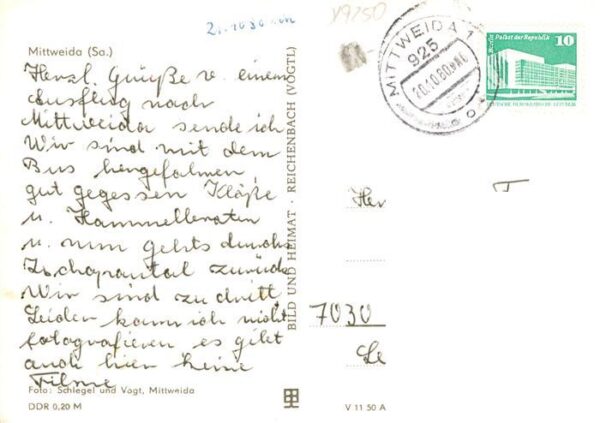 Mittweida (Sa.)
Herzl. Grüße v. einem
Ausflug nach
Mittweida sende ich
Wir sind mit dem
Bus hingefahren,
gut gegessen Klöße
u. Hammelbraten
u. nun gehts durchs
Zschopautal zurück
Wir sind zu dritt,
Leider kann ich nicht
fotografieren es gibt
auch hier keine
Filme
Foto: Schlegel und Vogt, Mittweida
DDR 0,20 M
BILD UND HEIMAT · REICHENBACH (VOGTL)
V 11 50 A
Y9250
MITTWEIDA 1
925
20.10.80
Berlin, Palast der Republik
10
Her
7030
Le